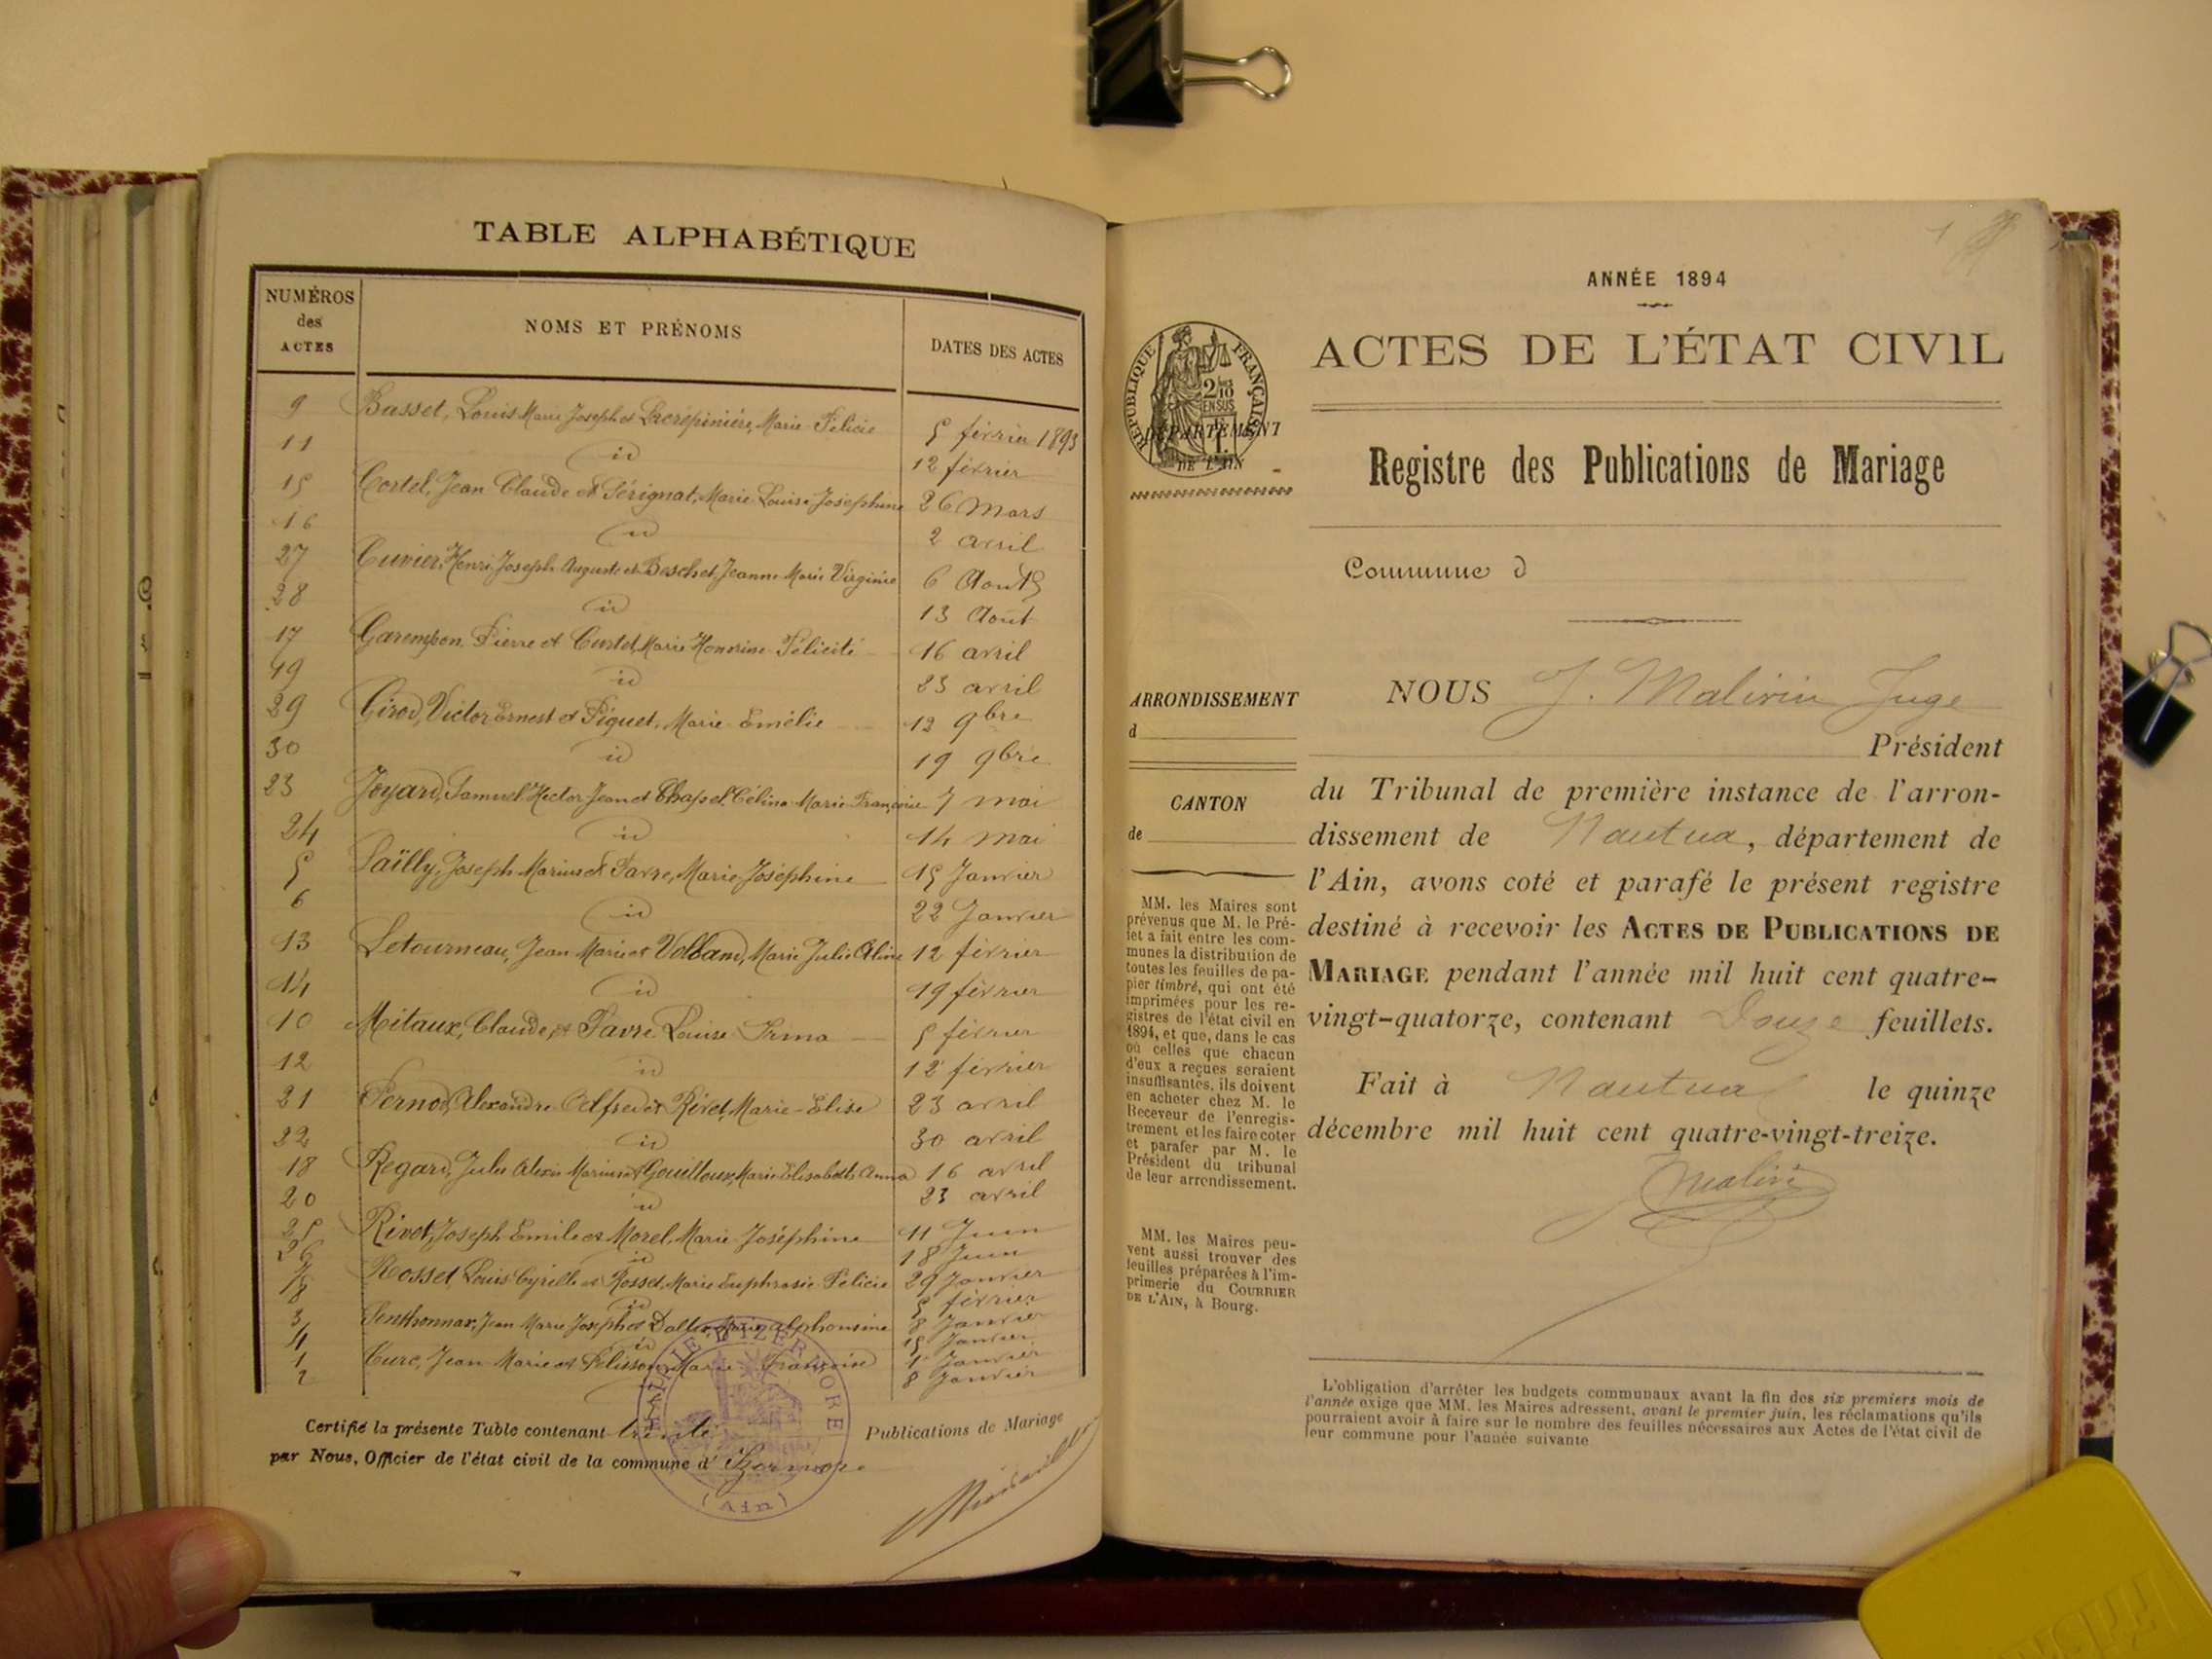 TABLE ALPHABÉTIQUE
NUMÉROS
des
ACTES
NOMS ET PRÉNOMS
DATES DES ACTES
9 Basset, Louis Marie Joseph et Lacrépinière, Marie Félicie 5 février 1893
11 id 12 février
15 Cortel, Jean Claude et Sérignat, Marie Louise Joséphine 26 Mars
16 id 2 avril
27 Cuvier, Henri Joseph Auguste et Beschet, Jeanne Marie Virginie 6 Aout
28 id 13 Aout
17 Garempon, Pierre et Curtet, Marie Honorine Félicité 16 avril
19 id 23 avril
29 Girod, Victor Ernest et Piguet, Marie Emélie 12 9bre
30 id 19 9bre
23 Joyard, Samuel Hector Jean et Chapel, Célina Marie Françoise 7 mai
24 id 14 mai
5 Lailly, Joseph Marius et Favre, Marie Joséphine 15 Janvier
6 id 22 Janvier
13 Letourneau, Jean Marie et Volland, Marie Julie Aline 12 février
14 id 19 février
10 Mitaux, Claude, et Favre Louise Irma 5 février
12 id 12 février
21 Pernod, Alexandre Alfred et Rivet, Marie-Elise 23 avril
22 id 30 avril
18 Regard, Jules Alexis Marius et Gouilloux, Marie Elisabeth Anna 16 avril
20 id 23 avril
25 Rivot, Joseph Emile et Morel, Marie Joséphine 11 Juin
26 id 18 Juin
7 Rosset, Louis Cyrille et Rosset, Marie Euphrasie Félicie 29 Janvier
8 id 5 février
3 Senthonnax, Jean Marie Joseph et Marie Alphonsine 8 Janvier
4 id 15 Janvier
1 Curc, Jean Marie et Pélisson, Marie Françoise 1er Janvier
2 8 Janvier
MAIRIE D'IZERNORE
(Ain)
Certifié la présente Table contenant trente Publications de Mariage
par Nous, Officier de l'état civil de la commune d'Izernore
ANNÉE 1894
ACTES DE L'ÉTAT CIVIL
RÉPUBLIQUE FRANÇAISE
2/10 EN SUS
DÉPARTEMENT
DE L'AIN
Registre des Publications de Mariage
Commune d
ARRONDISSEMENT
d
CANTON
de
MM. les Maires sont
prévenus que M. le Pré-
fet a fait entre les com-
munes la distribution de
toutes les feuilles de pa-
pier timbré, qui ont été
imprimées pour les re-
gistres de l'état civil en
1894, et que, dans le cas
où celles que chacun
d'eux a reçues seraient
insuffisantes, ils doivent
en acheter chez M. le
Receveur de l'enregis-
trement et les faire coter
et parafer par M. le
Président du tribunal
de leur arrondissement.
MM. les Maires peu-
vent aussi trouver des
feuilles préparées à l'im-
primerie du COURRIER
DE L'AIN, à Bourg.
NOUS J. Malivin Juge
Président
du Tribunal de première instance de l'arron-
dissement de Nantua, département de
l'Ain, avons coté et parafé le présent registre
destiné à recevoir les ACTES DE PUBLICATIONS DE
MARIAGE pendant l'année mil huit cent quatre-
vingt-quatorze, contenant Douze feuillets.
Fait à Nantua le quinze
décembre mil huit cent quatre-vingt-treize.
L'obligation d'arrêter les budgets communaux avant la fin des six premiers mois de
l'année exige que MM. les Maires adressent, avant le premier juin, les réclamations qu'ils
pourraient avoir à faire sur le nombre des feuilles nécessaires aux Actes de l'état civil de
leur commune pour l'année suivante